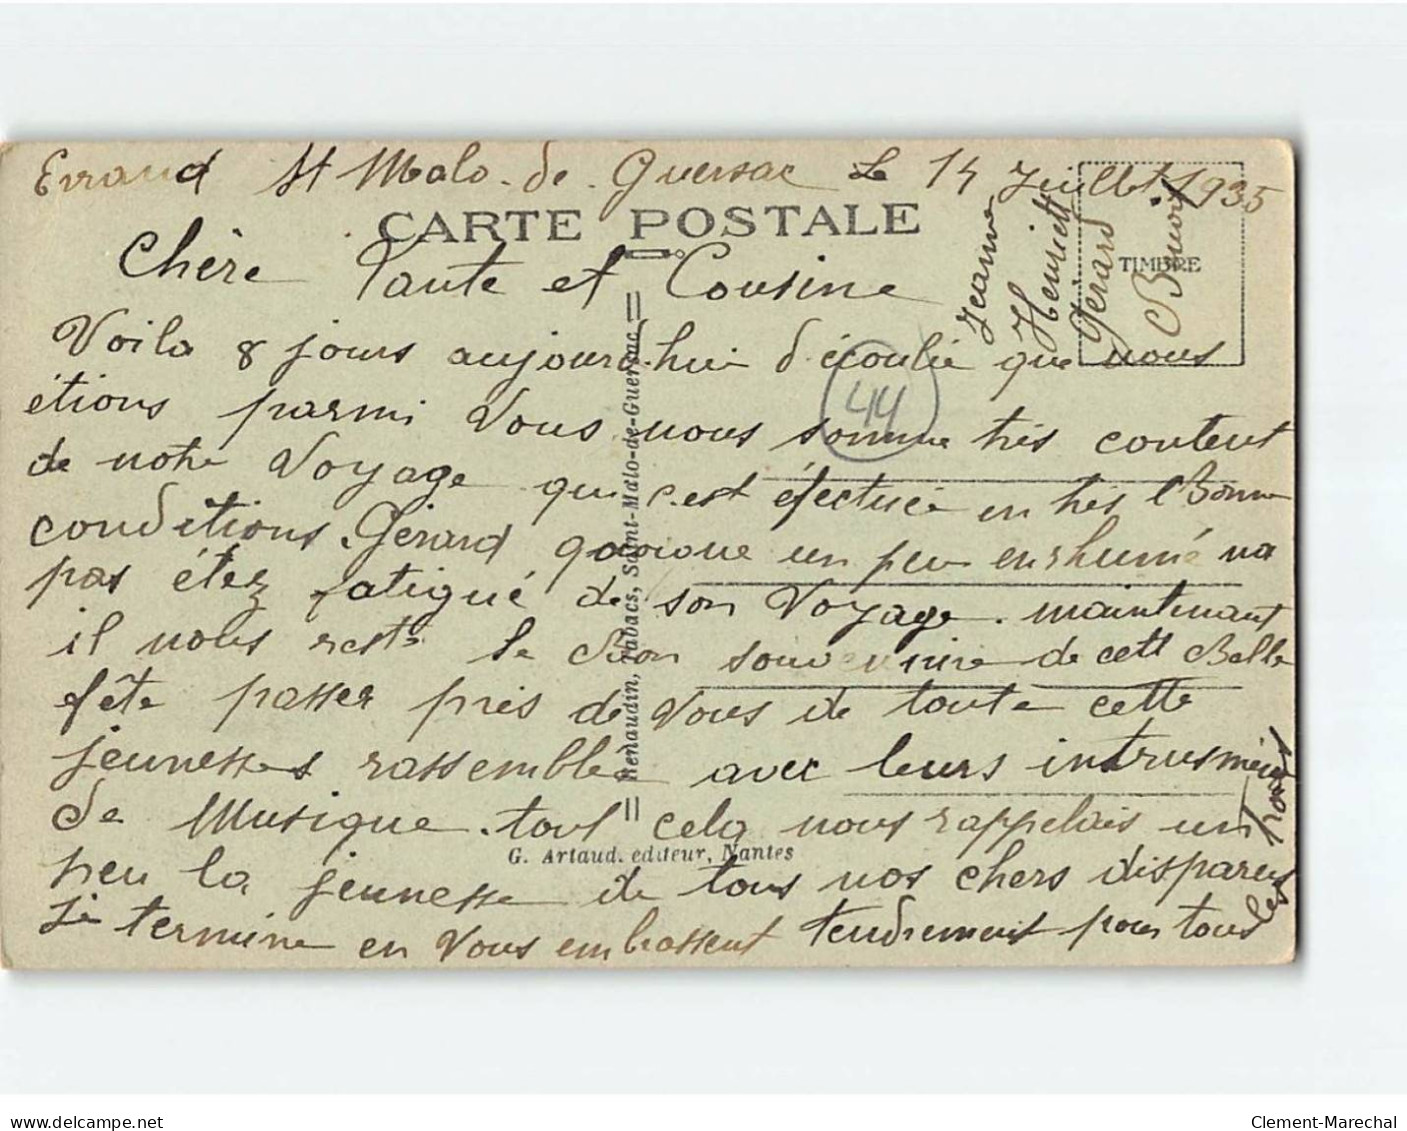 Errand St Malo. de. Guersac Le 14 Juillet. 1935
CARTE POSTALE
TIMBRE
Chère Tante et Cousine
Voila 8 jours aujourd.hui d'écoulée que nous
étions parmi Vous nous somme très content
de notre Voyage qui c.est éfectuée en très Bonne
conditions. Gérard quoique un peu enrhumé na
pas étez fatigué de son Voyage. maintenant
il nous reste le Bon souvenire de cett Belle
fête passer près de Vous de toute cette
jeunesse rassemblée avec leurs intrusments
de Musique. tout cela nous rappelais un
peu la jeunesse de tous nos chers disparus
je termine en Vous embrassent tendrement pour tous
les trois
Jeanne
Henriett
Gérard
Benoit
44
Renaudin, Tabacs, Saint-Malo-de-Guersac
G. Artaud. éditeur, Nantes
www.delcampe.net
Clement-Marechal